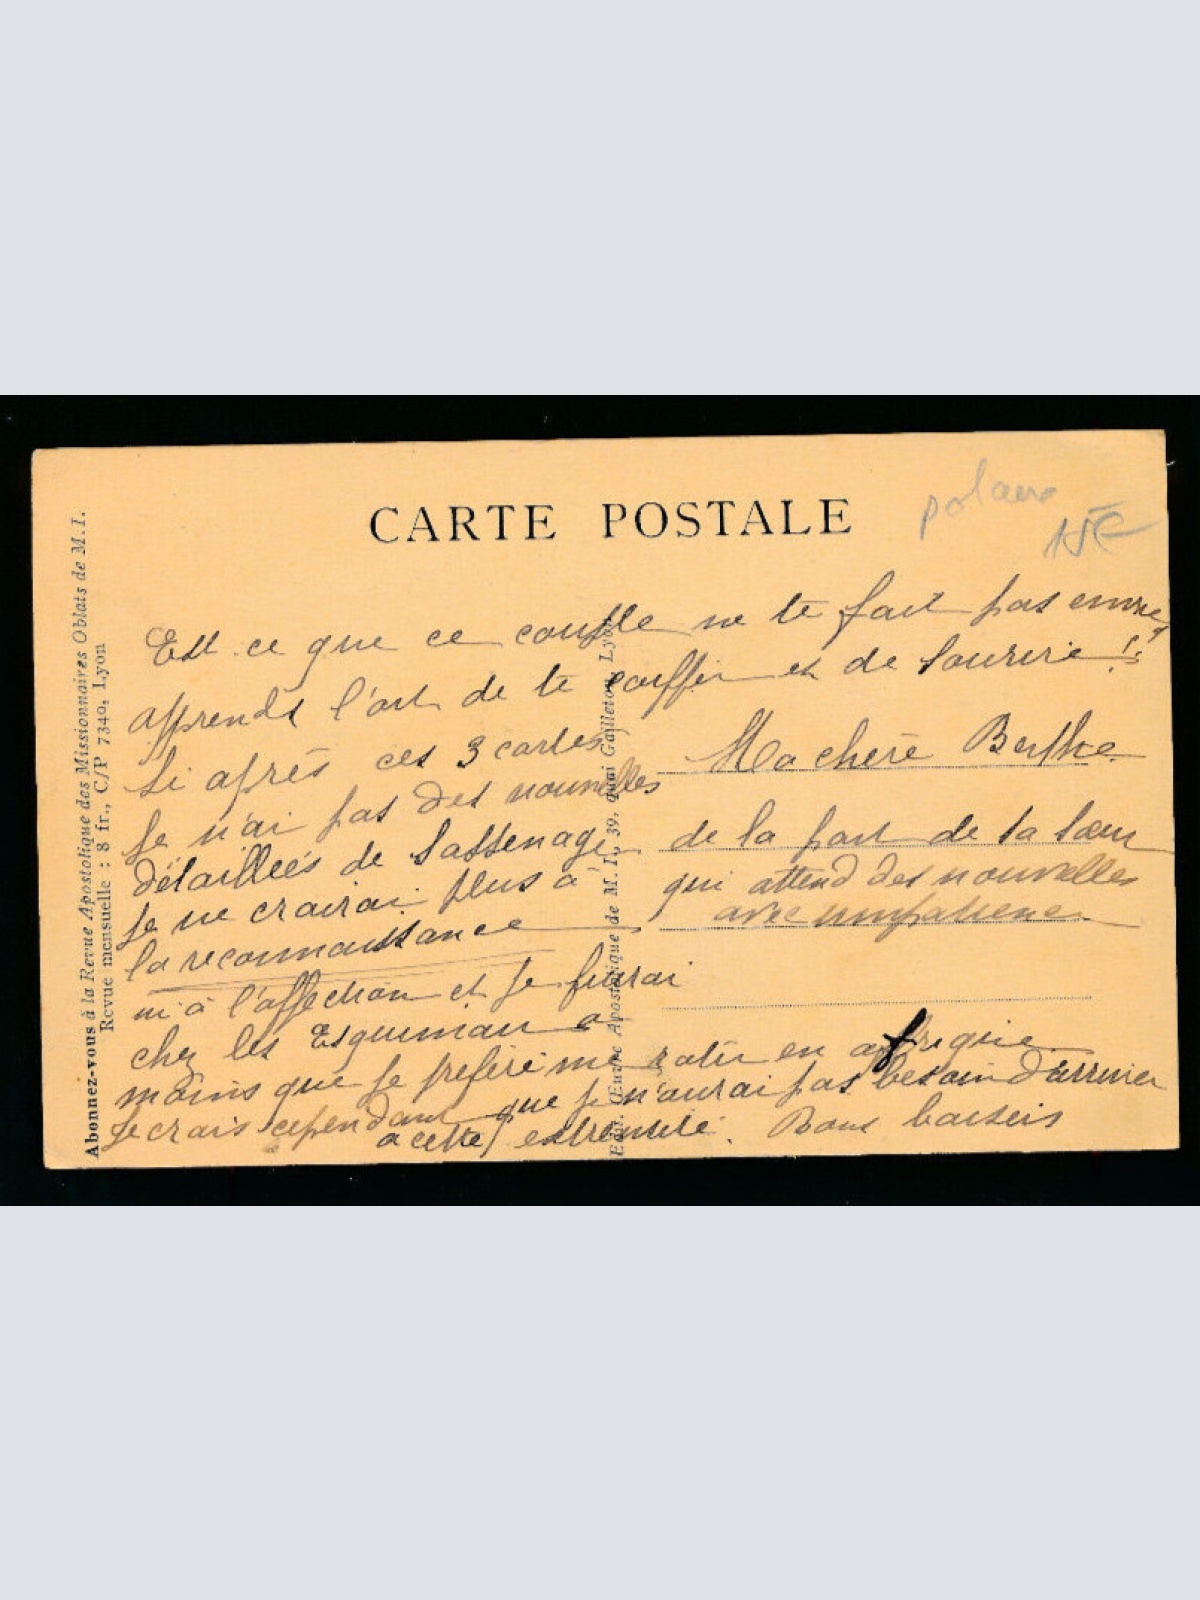 CARTE POSTALE
15€
Est ce que ce couple ne te fait pas envie,
apprends l'art de te coiffer et de sourire !!
Si après ces 3 cartes
je n'ai pas des nouvelles
détaillées de Sassenage
je ne crairai plus à
la reconnaissance
ni à l'affection et je fuirai
chez les Esquimau a
moins que je préfère me rotir en affrique
Je crais cependant que je n'aurai pas besain d'arriver
a cette extremité. Bons baisers
Ma chère Berthe
de la part de ta sœur
qui attend des nouvelles
avec impatience
Abonnez-vous à la Revue Apostolique des Missionnaires Oblats de M.I.
Revue mensuelle : 8 fr., C/P 7340, Lyon
Edit. Œuvre Apostolique de M. I., 39, quai Gailleton, Lyon